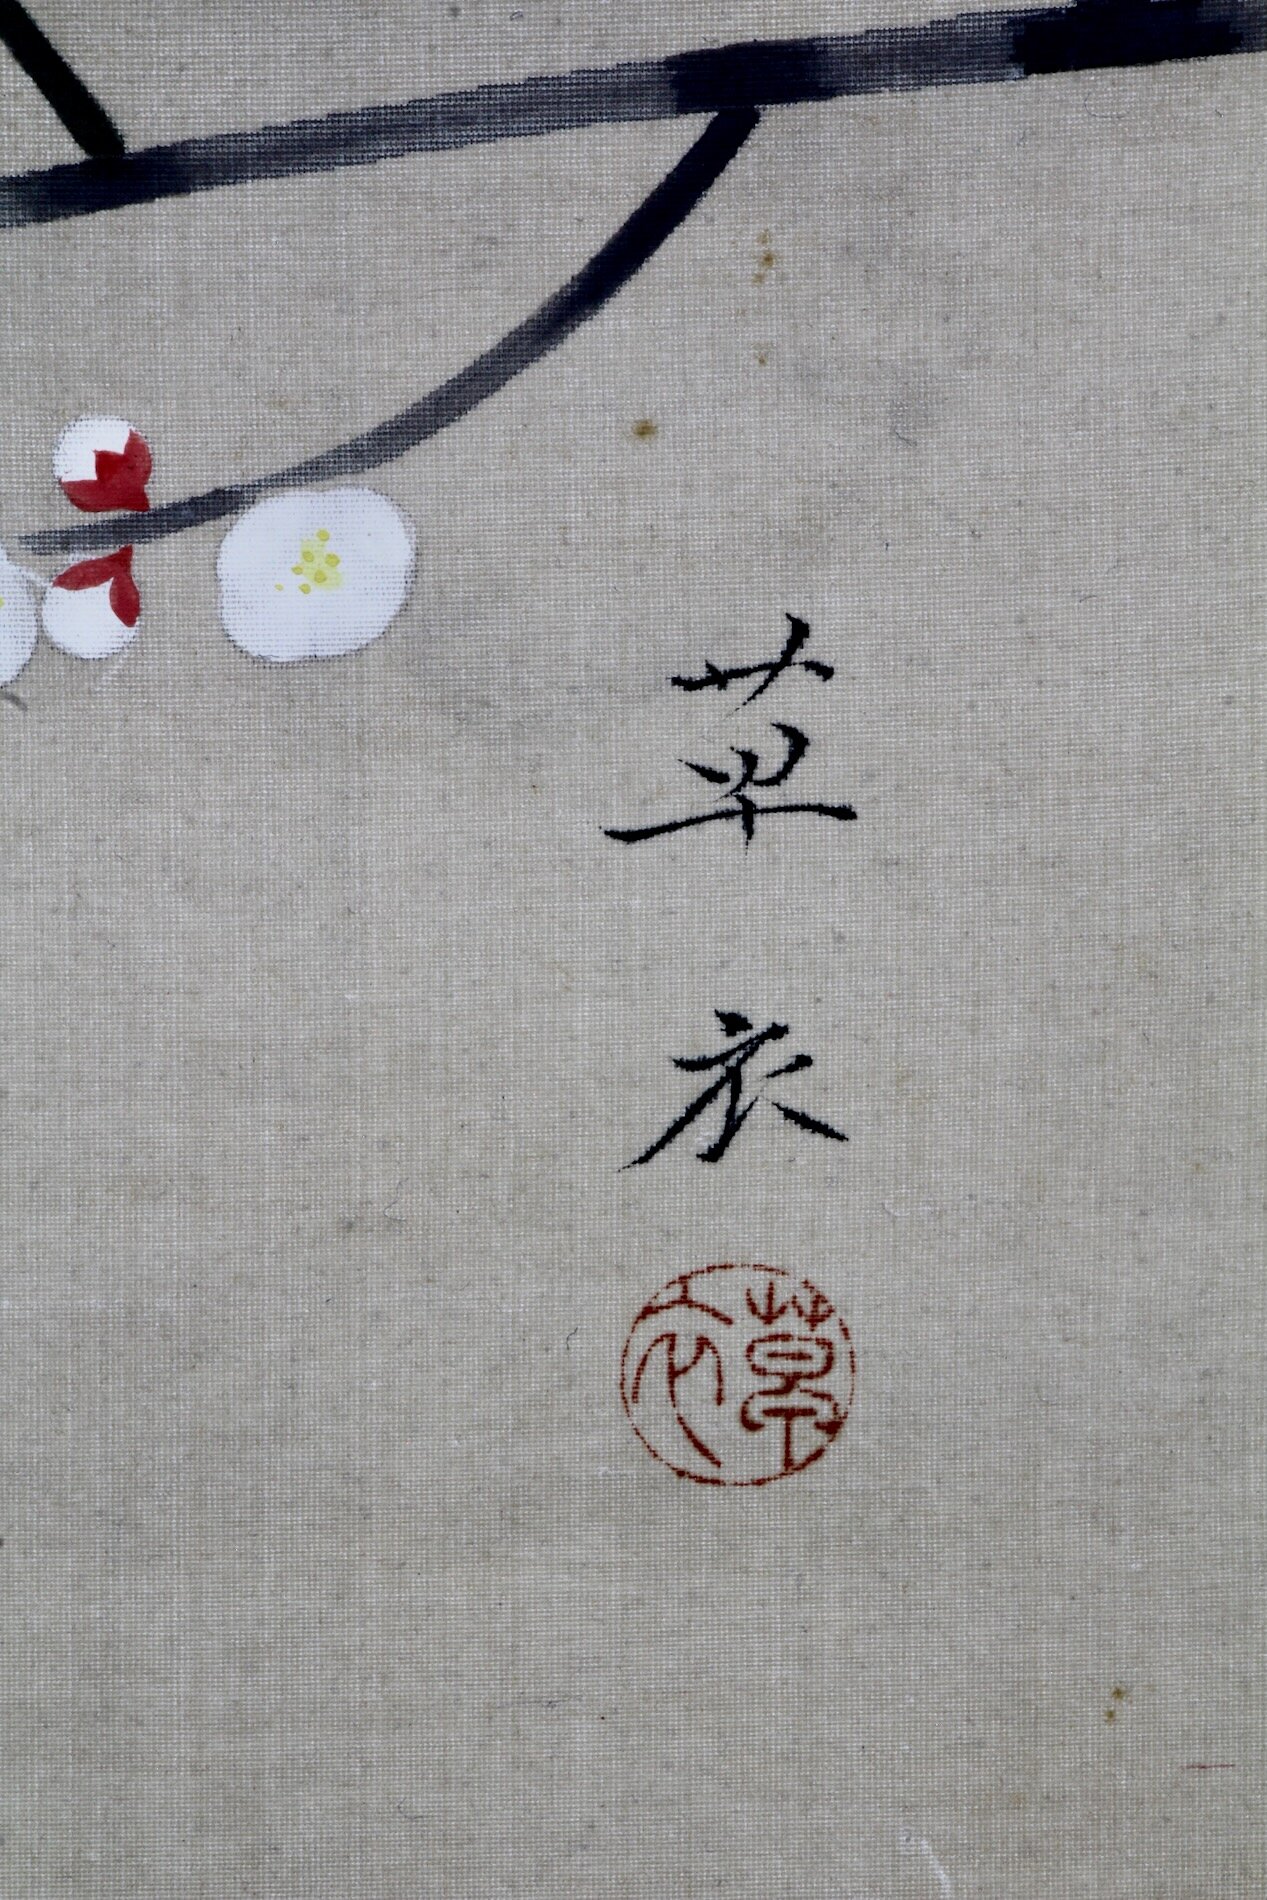 草
衣
草衣